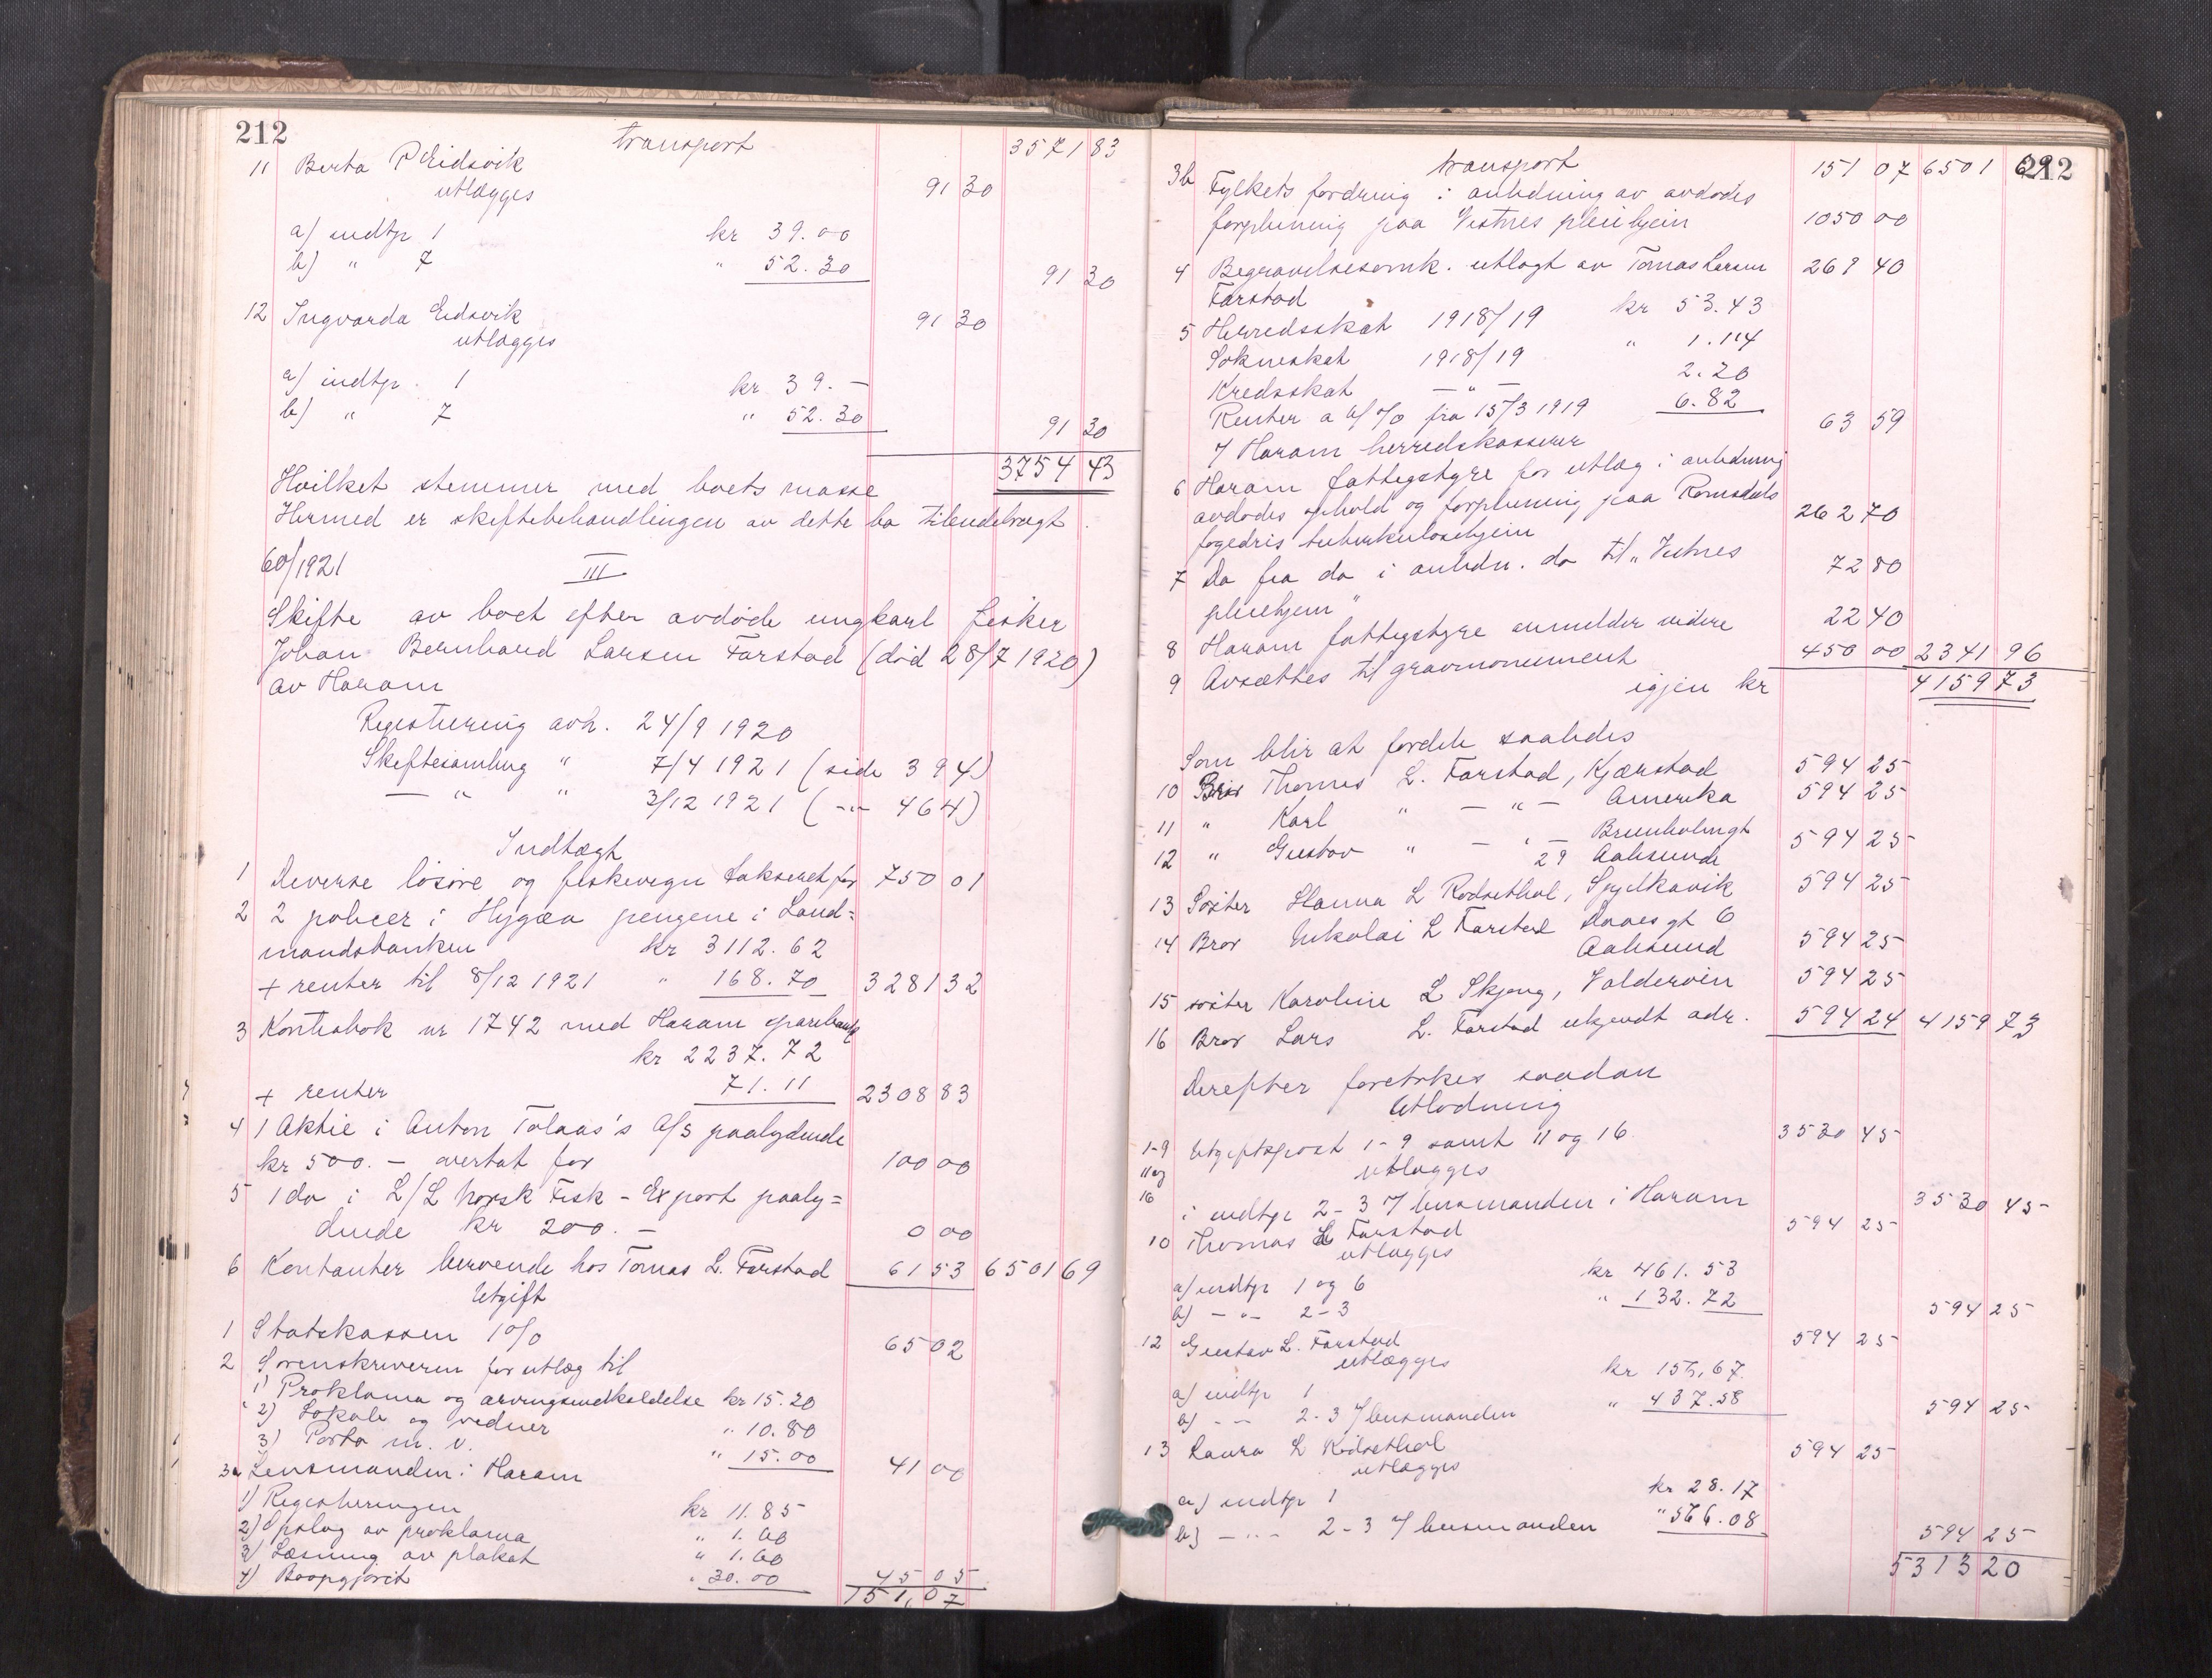 212
transport 3571 83
11 Berta P Eidsvik 91 30
utlægges
a) indtp 1 kr 39.00
b) " 7 " 52.30 91 30
12 Ingvarda Eidsvik 91 30
utlægges
a) indtp. 1 kr 39.–
b) " 7 " 52.30 91 30
3754 43
Hvilket stemmer med boets masse
Hermed er skiftebehandlingen av dette bo tilendebragt.
60/1921 III
Skifte av boet efter avdøde ungkarl fisker
Johan Bernhard Larsen Farstad (død 28/7 1920)
av Haram
Registrering avh. 24/9 1920
Skiftesamling " 7/4 1921 (side 394)
— " — " 3/12 1921 (-"- 464)
Indtægt
1 Diverse løsøre og fiskevegn takseret for 750 01
2 2 policer i Hygæa pengene i Land=
mandsbanken kr 3112.62
+ renter til 8/12 1921 " 168.70 3281 32
3 Kontrabok nr 1742 med Haram sparebank
kr 2237.72
+ renter 71.11 2308 83
4 1 Aktie i Anton Tolaas's A/S paalydende
kr 500.– overtat for 100 00
5 1 do i L/L Norsk Fisk-Export paaly=
dende kr 200.– 0 00
6 Kontanter beroende hos Tomas L. Farstad 61 53 6501 69
Utgift
1 Statskassen 1% 65 02
2 Sorenskriveren for utlæg til
1) Proklama og arvingsindkaldelse kr 15.20
2) Lokale og vidner " 10.80
3) Porto m. v. " 15.00 41 00
3a Lensmanden i Haram
1) Registreringen kr 11.85
2) Opslag av proklama " 1.60
3) Læsning av plakat " 1.60
4) Boopgjørit " 30.00 45 05
151,07
212
transport 151 07 6501 69
3b Fylkets fordring i anledning av avdødes
forpleining paa Vestnes pleiehjem 1050 00
4 Begravelsesomk. utlagt av Tomas Larsen 269 40
Farstad
5 Herredsskat 1918/19 kr 53.43
Sokneskat 1918/19 " 1.14
Kredsskat — " — 2.20
Renter a 6/% fra 15/3 1919 6.82 63 59
/ Haram herredskasserer
6 Haram fattigstyre for utlæg i anledning
avdødes ophold og forpleining paa Romsdals
fogedris tuberkulosehjem 262 70
7 Do fra do i anledn. do til "Vestnes
pleiehjem" 72 80
8 Haram fattigstyre anmelder videre 22 40
9 Avsættes til gravmonument 450 00 2341 96
igjen kr 4159 73
Som blir at fordele saaledes
10 Bror Thomas L. Farstad, Kjærstad 594 25
11 " Karl " — " — Amerika 594 25
12 " Gustav " — " — Brunholmgt
29 Aalesund 594 25
13 Søster Hanna L Rødsethol, Spjelkavik 594 25
14 Bror Nikolai L Farstad Daaes gt 6
Aalesund 594 25
15 søster Karoline L Skjong, Valderøen 594 25
16 Bror Lars L. Farstad ukjendt adr. 594 24 4159 73
Derefter foretokes saadan
Utlodning
1-9 11 og 16 Utgiftspost 1-9 samt 11 og 16. 3530 45
utlægges
i indtp 2-3 / lensmanden i Haram 3530 45
10 Thomas L Farstad 594 25
utlægges
a) indtp 1 og 6 kr 461.53
b) — " — 2-3 " 132.72 594 25
12 Gustav L. Farstad 594 25
utlægges
a) indtp 1 kr 156.67.
b) — " — 2-3 / lensmanden " 437.58 594 25
13 Laura L Rødsethol 594 25
utlægges
a) indtp 1 kr 28.17
b) — " — 2-3 / lensmanden " 566.08 594 25
5313 20